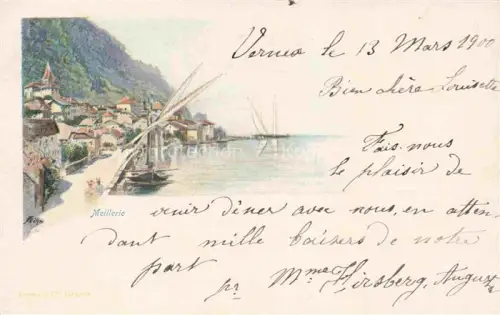 Vernex le 13 Mars 1900
Bien chère Louisette
Fais-nous
le plaisir de
Meillerie
venir dîner avec nous, en atten-
dant mille baisers de notre
part
pr Mme Hirsberg, Augusta